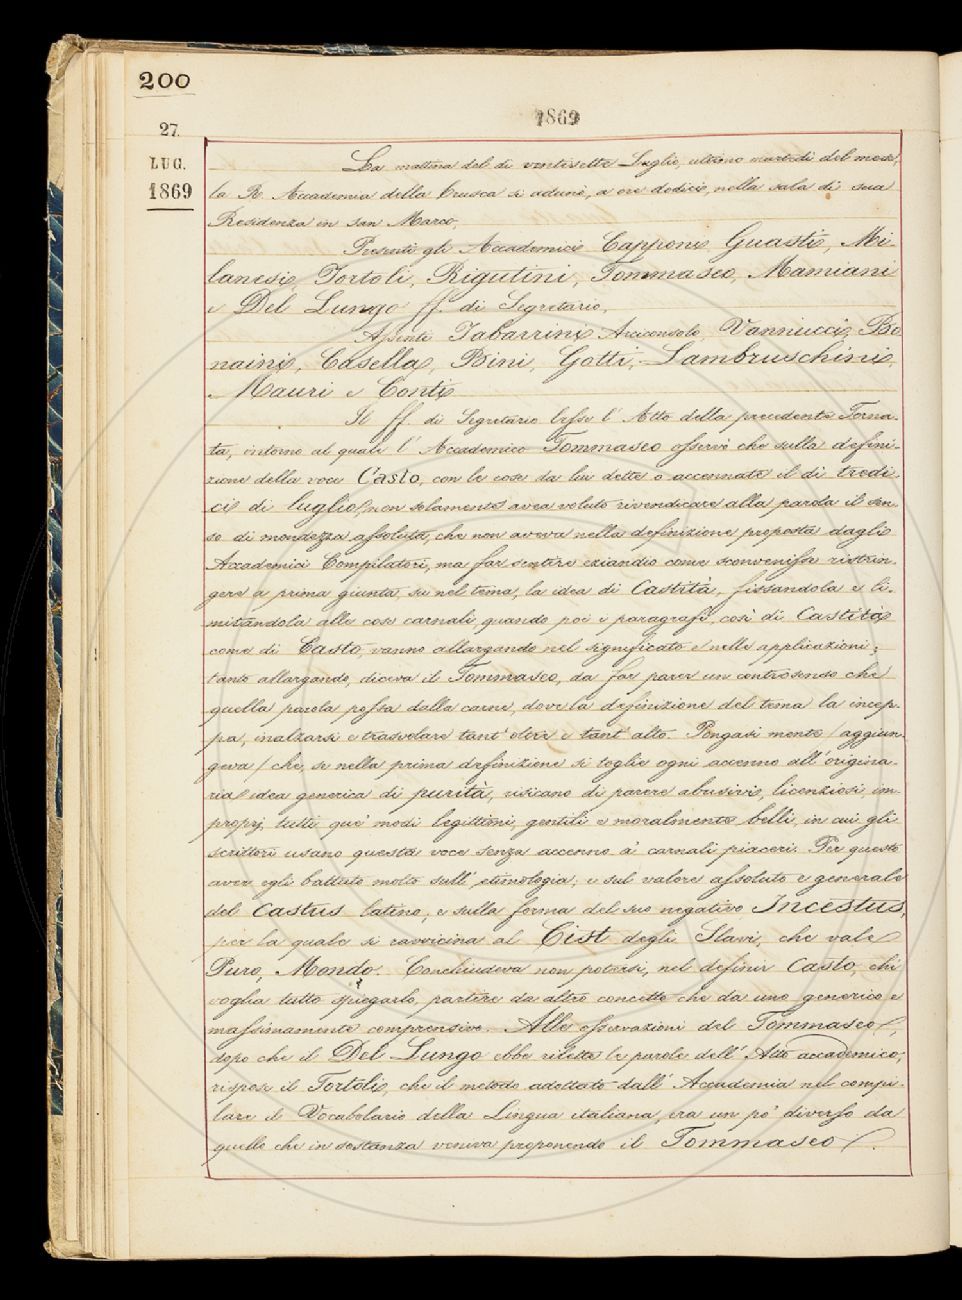 200
1869
27
LUG.
1869
La mattina del dì ventisette Luglio, ultimo martedì del mese,
la R. Accademia della Crusca si adunò, a ore dodici, nella sala di sua
Residenza in San Marco,
Presenti gli Accademici Capponi Guasti, Mi-
lanesi, Tortoli, Rigutini, Tommaseo, Mamiani
e Del Lungo ff. di Segretario,
Assenti Tabarrini Arciconsolo, Vannucci, Bo
naini, Casella, Bini, Gotti, Lambruschini,
Mauri e Conti
Il ff. di Segretario lesse l'Atto della precedente Torna-
ta, intorno al quale l'Accademico Tommaseo osservò che sulla defini-
zione della voce Casto, con le cose da lui dette o accennate il dì tredi-
ci di luglio, non solamente avea voluto rivendicare alla parola il sen-
so di mondezza assoluta, che non aveva nella definizione proposta dagli
Accademici Compilatori, ma far sentire eziandio come sconvenisse ristrin-
gere a prima giunta, su nel tema, la idea di Castità, fissandola e li-
mitandola alle cose carnali, quando poi i paragrafi, così di Castità
come di Casto, vanno allargando nel significato e nelle applicazioni;
tanto allargando, diceva il Tommaseo, da far parer un controsenso che
quella parola possa dalla carne, dove la definizione del tema la incep-
pa, inalzarsi e trasvolare tant'oltre e tant'alto. Pongasi mente (aggiun-
geva) che, se nella prima definizione si toglie ogni accenno all'origina-
ria idea generica di purità, risicano di parere abusivi, licenziosi, im-
proprj, tutti que' modi legittimi, gentili e moralmente belli, in cui gli
scrittori usano questa voce senza accenno a' carnali piaceri. Per questo
aver egli battuto molto sull'etimologia, e sul valore assoluto e generale
del Castus latino, e sulla forma del suo negativo Incestus,
per la quale si ravvicina al Cist degli Slavi, che vale
Puro, Mondo. Conchiudeva non potersi, nel definir Casto, chi
voglia tutto spiegarlo, partire da altro concetto che da uno generico e
massimamente comprensivo. Alle osservazioni del Tommaseo,
dopo che il Del Lungo ebbe rilette le parole dell'Atto accademico,
rispose il Tortoli, che il metodo adottato dall'Accademia nel compi-
lare il Vocabolario della Lingua italiana, era un po' diverso da
quello che in sostanza veniva proponendo il Tommaseo.